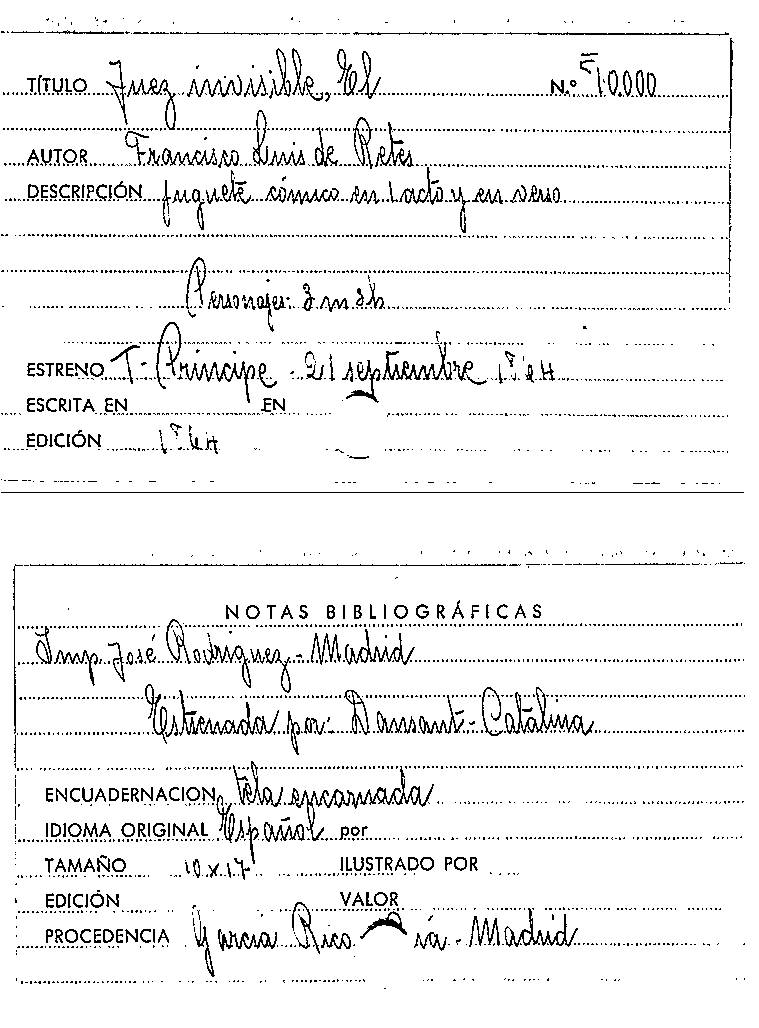 TÍTULO Juez invisible, El N.º 10.000
AUTOR Francisco Luis de Retes
DESCRIPCIÓN juguete cómico en 1 acto y en verso
Personajes: 3 m 2 h
ESTRENO T- Príncipe - 21 septiembre 1864
ESCRITA EN EN
EDICIÓN 1864
NOTAS BIBLIOGRÁFICAS
Imp José Rodriguez - Madrid
Estrenada por: Dansant - Catalina
ENCUADERNACION tela encarnada
IDIOMA ORIGINAL Español por
TAMAÑO 10 x 17 ILUSTRADO POR
EDICIÓN VALOR
PROCEDENCIA García Rico - Madrid